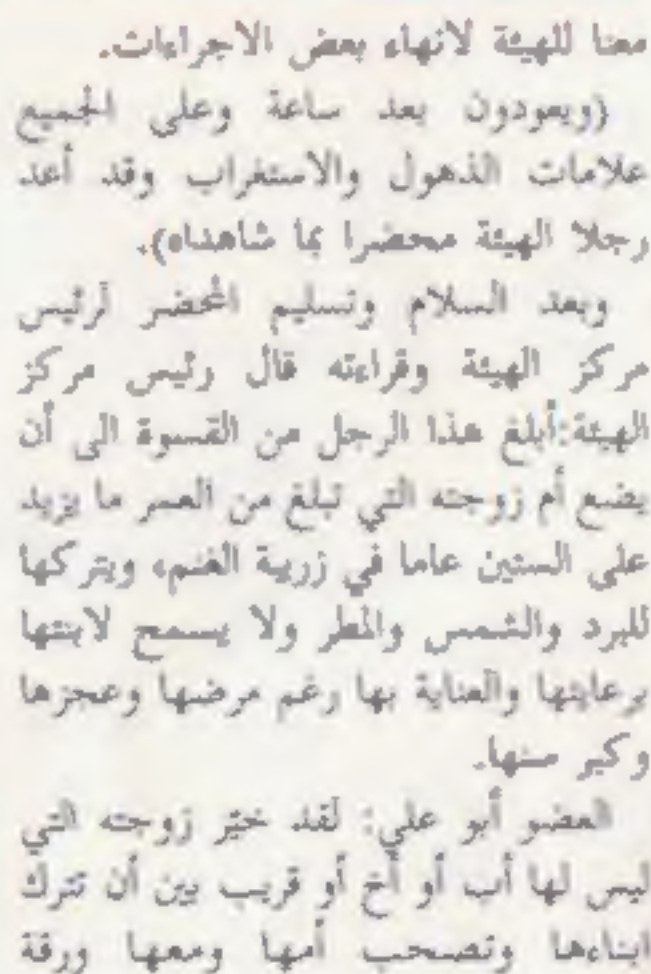 معنا للهيئة لانهاء بعض الاجراءات.
(ويعودون بعد ساعة وعلى الجميع
علامات الذهول والاستغراب وقد أعد
رجلا الهيئة محضرا بما شاهداه).
وبعد السلام وتسليم المحضر لرئيس
مركز الهيئة وقراءته قال رئيس مركز
الهيئة:أبلغ هذا الرجل من القسوة الى أن
يضع أم زوجته التي تبلغ من العمر ما يزيد
على الستين عاما في زريبة الغنم، ويتركها
للبرد والشمس والمطر ولا يسمح لابنتها
برعايتها والعناية بها رغم مرضها وعجزها
وكبر سنها.
العضو أبو علي: لقد خيّر زوجته التي
ليس لها أب أو أخ أو قريب بين أن تترك
ابناءها وتصحب أمها ومعها ورقة